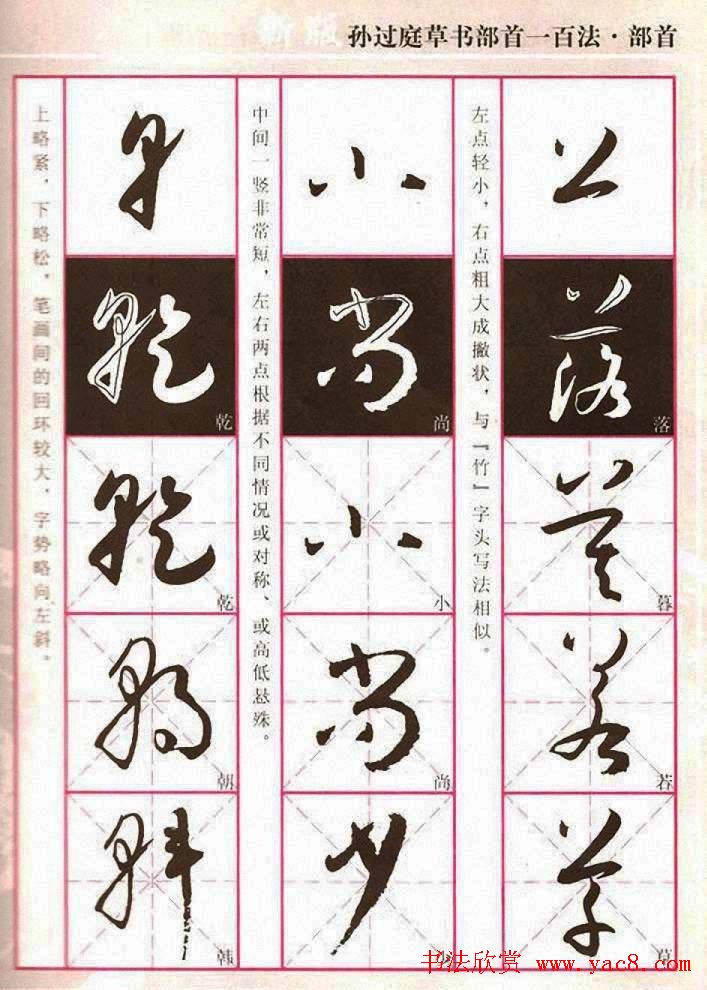 新版
孙过庭草书部首一百法·部首
落
暮
若
草
左点轻小，右点粗大成撇状，与『竹』字头写法相似。
小
尚
小
尚
少
中间一竖非常短，左右两点根据不同情况或对称、或高低悬殊。
乾
乾
朝
韩
上略紧，下略松，笔画间的回环较大，字势略向左斜。
书法欣赏 www.yac8.com